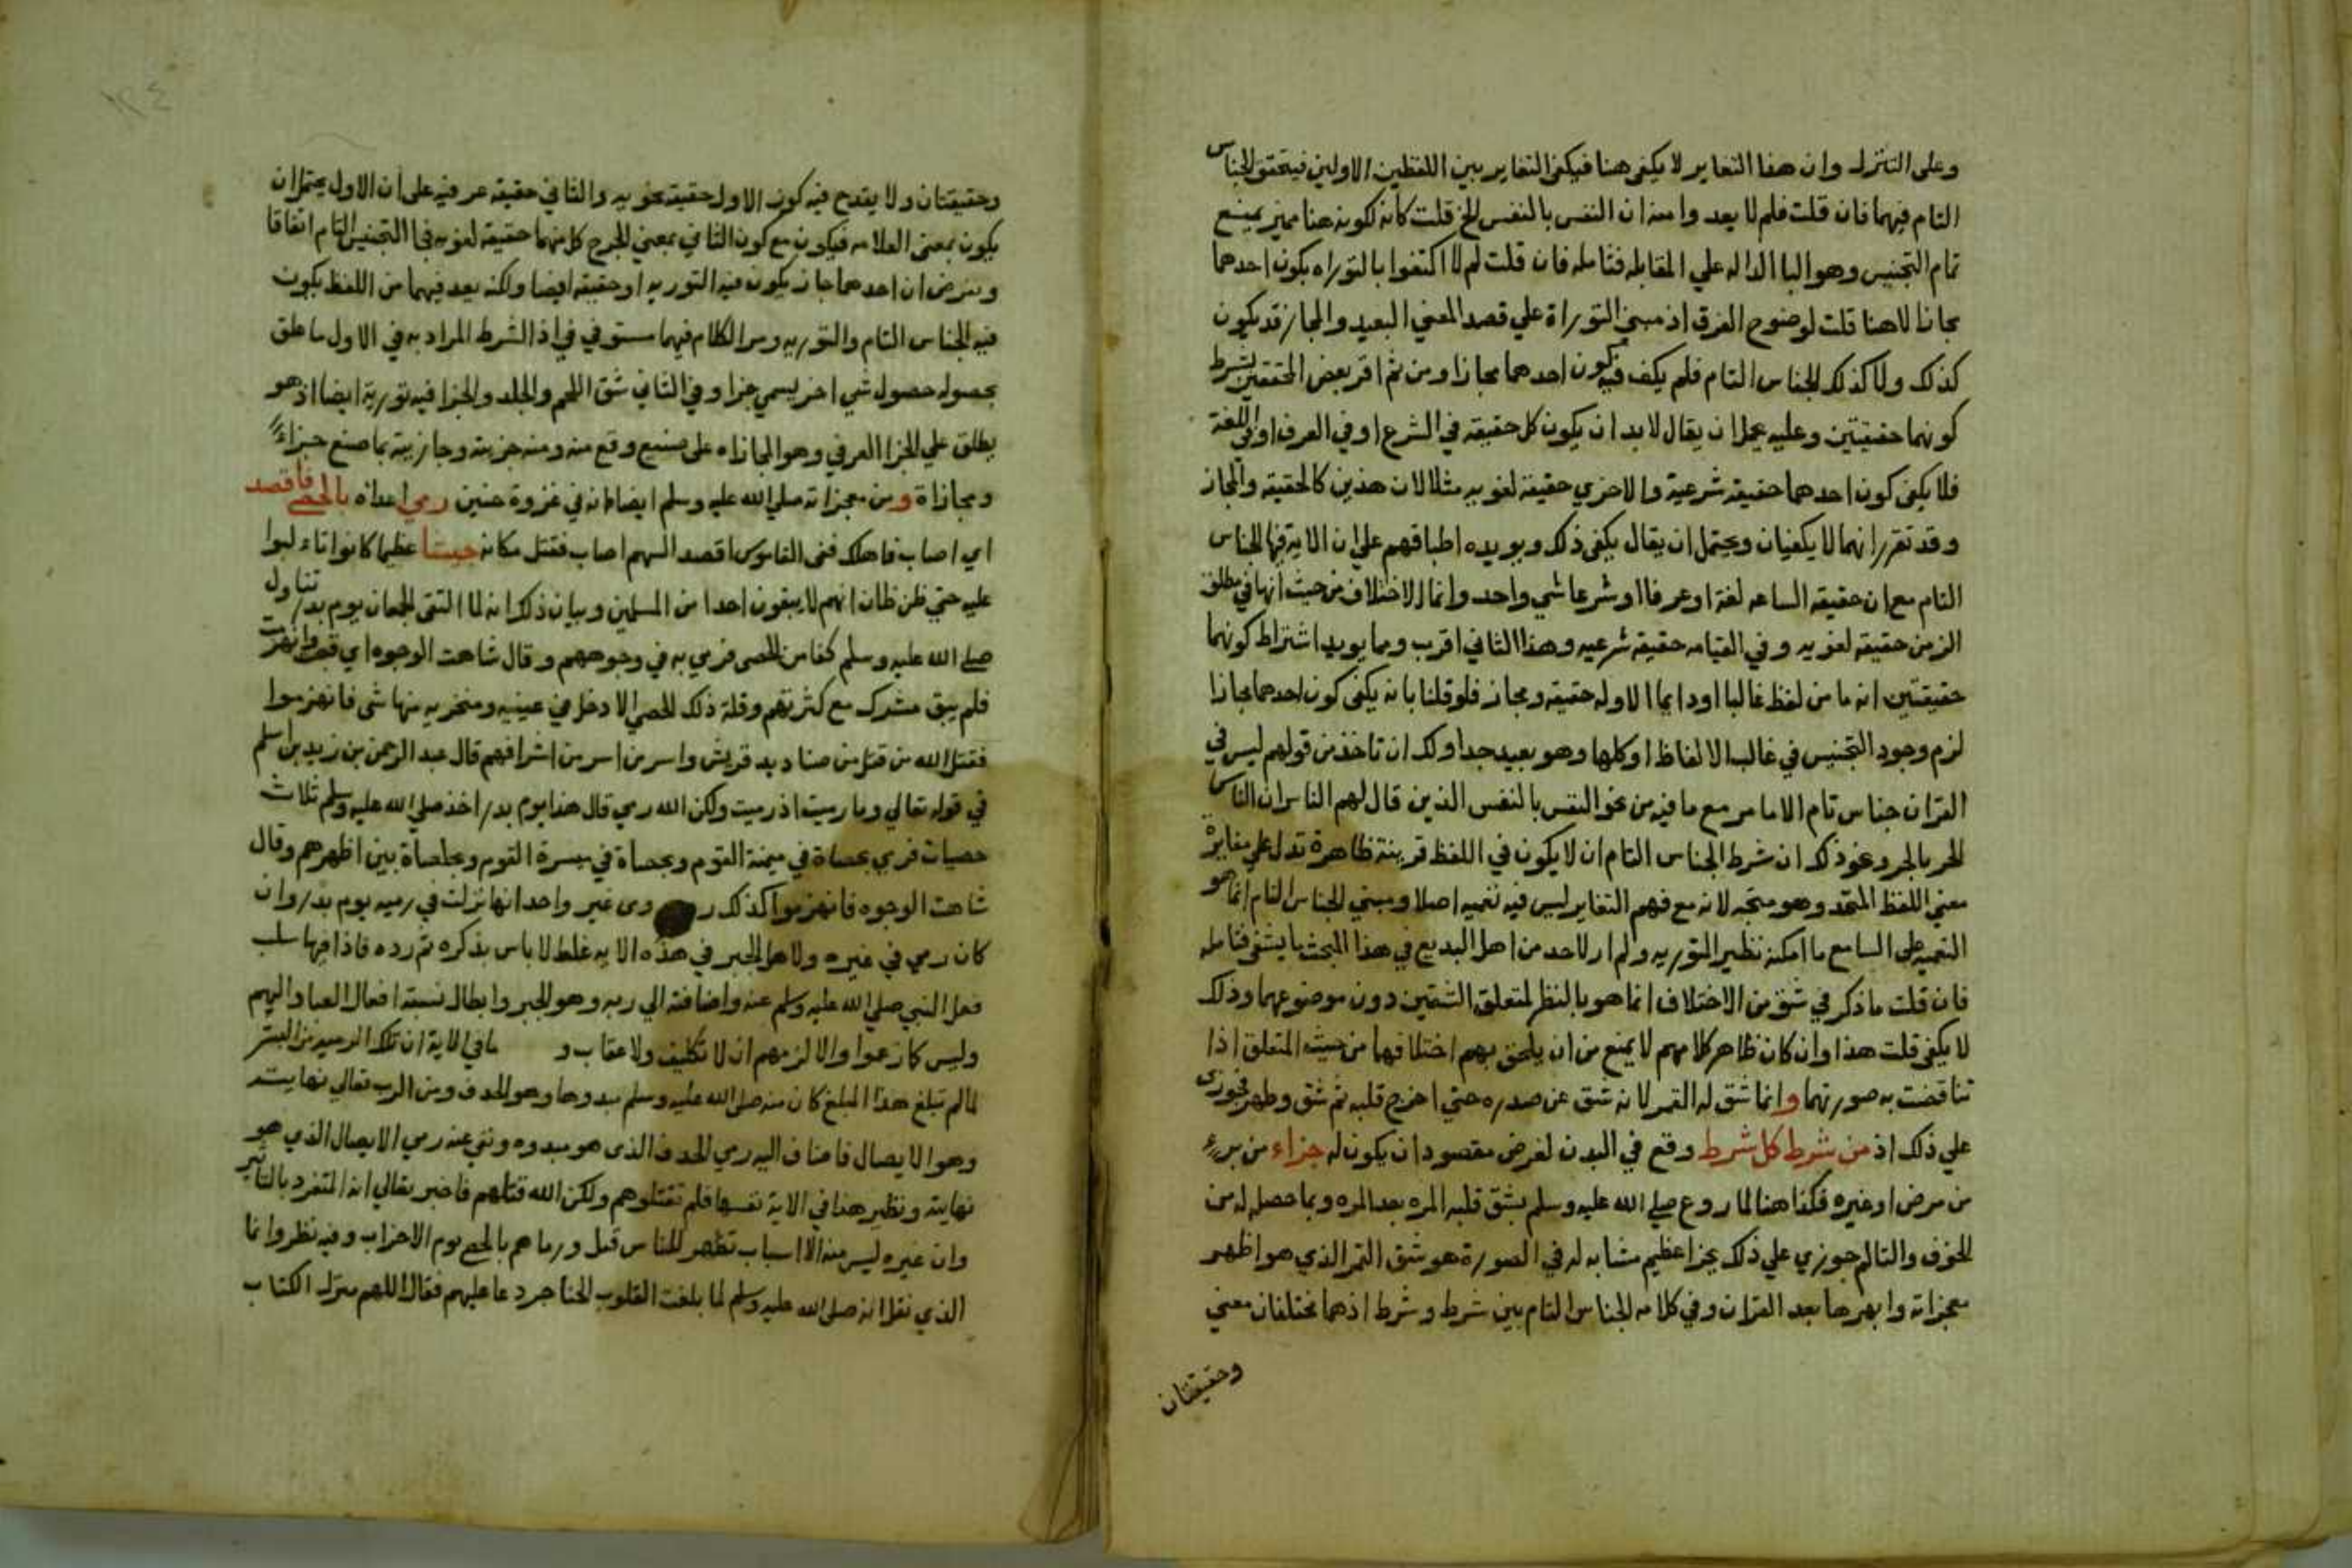 وعلى التنزل وان هذا التغاير لا يكفى هنا فيكفى التغاير بين اللفظين الاولين فيتحقق الجناس
التام فيهما فان قلت فلم لا يعد وامنه ان النفس بالنفس الخ قلت كانه لكونه هنا مميز يمنع
تمام التجنيس وهو البا الداله علي المقابله فتامله فان قلت لم لا اكتفوا بالتوراه بكون احدهما
مجازا لا هنا قلت لوضوح الفرق اذ مبنى التوراة علي قصد المعنى البعيد والمجاز قد يكون
كذلك ولا كذلك الجناس التام فلم يكف فيه كون احدهما مجازا ومن ثم اقر بعض المحققين بشرط
كونهما حقيقتين وعليه يحتمل ان يقال لا بد ان يكون كل حقيقه في الشرع او في العرف او في اللغة
فلا يكفى كون احدهما حقيقه شرعية والاخري حقيقة لغويه مثلا لان هذين كالحقيقه والمجاز
وقد تقرر انهما لا يكفيان ويحتمل ان يقال يكفى ذلك ويويده اطباقهم علي ان الايه فيها الجناس
التام مع ان حقيقه الساعه لغة او عرفا او شرعا شي واحد وانما الاختلاف من حيث انها في مطلق
الزمن حقيقه لغويه وفي القيامه حقيقة شرعيه وهذا الثاني اقرب ومما يويد اشتراط كونهما
حقيقتين انه ما من لفظ غالبا او دايما الا وله حقيقه ومجاز فلو قلنا بانه يكفى كون احدهما مجازا
لزم وجود التجنيس في غالب الالفاظ او كلها وهو بعيد جدا ولك ان تاخذ من قولهم ليس في
القران جناس تام الا ما مر مع ما فيه من نحو النفس بالنفس الذين قال لهم الناس ان الناس
الحر بالحر ونحو ذلك ان شرط الجناس التام ان لا يكون في اللفظ قرينة ظاهرة تدل علي مغايرة
معنى اللفظ المتحد وهو متجه لانه مع فهم التغاير ليس فيه تعميه اصلا ومبنى الجناس التام انما هو
التعميه على السامع ما امكنه نظير التوريه ولم ار لاحد من اهل البديع في هذا المبحث ما يشفى فتامله
فان قلت ما ذكر في شق من الاختلاف انما هو بالنظر لمتعلق الشقين دون موضوعهما وذلك
لا يكفى قلت هذا وان كان ظاهر كلامهم لا يمنع من ان يلحق بهم اختلافهما من حيث المتعلق اذا
تناقضت به صورتهما وانما شق له القمر لانه شق عن صدره حتي اخرج قلبه ثم شق وطهر فجوزى
علي ذلك اذ من شرط كل شرط وقع في البدن لغرض مقصود ان يكون له جزاء من برء
من مرض او غيره فكذا هنا لما روع صلي الله عليه وسلم بشق قلبه المره بعد المره وبما حصل له من
الخوف والتالم جوزي علي ذلك بجزا عظيم مشابه له في الصورة هو شق القمر الذي هو اظهر
معجزاته وابهرها بعد القران وفي كلامه الجناس التام بين شرط وشرط اذ هما مختلفان معنى
وحقيقتان
وحقيقتان ولا يقدح فيه كون الاول حقيقه لغويه والثاني حقيقه عرفيه على ان الاول يحتمل ان
يكون بمعنى العلامه فيكون مع كون الثاني بمعني الجرح كل منهما حقيقه لغويه فيها التجنيس التام اتفاقا
وبفرض ان احدهما مجاز يكون فيه التوريه او حقيقه ايضا ولكنه بعد فيهما من اللفظ يكون
فيه الجناس التام والتوريه ومر الكلام فيهما مستوفي في اذ الشرط المراد به في الاول ما علق
بحصوله حصول شي اخر يسمي جزا وفي الثاني شق اللحم والجلد والجزا فيه تورية ايضا اذ هو
يطلق علي الجزا العرفي وهو المجازاه على صنيع وقع منه ومنه جزيته وجازيته بما صنع جزاء
ومجازاة ومن معجزاته صلي الله عليه وسلم ايضا انه في غزوة حنين رمي اعداه بالحصى فاقصد
اي اصاب فاهلك ففى القاموس اقصد السهم اصاب فقتل مكانه جيشا عظيما كانوا تالبوا
عليه حتي ظن ظان انهم لا يبقون احدا من المسلمين وبيان ذلك انه لما التقى الجمعان يوم بدر تناول
صلي الله عليه وسلم كفا من الحصى فرمي به في وجوههم وقال شاهت الوجوه اي قبحت
فلم يبق مشرك مع كثرتهم وقلة ذلك الحصى الا دخل في عينيه ومنخريه منها شى فانهزموا
فقتل الله من قتل من صناديد قريش واسر من اسر من اشرافهم قال عبد الرحمن بن زيد بن اسلم
في قوله تعالي وما رميت اذ رميت ولكن الله رمي قال هذا يوم بدر اخذ صلي الله عليه وسلم ثلاث
حصيات فرمي بحصاة في ميمنة القوم وبحصاة في ميسرة القوم وبحصاة بين اظهرهم وقال
شاهت الوجوه فانهزموا كذلك روى غير واحد انها نزلت في رميه يوم بدر وان
كان رمي في غيره ولاهل الجبر في هذه الايه غلط لا باس بذكره ثم رده فاذا فيها سلب
فعل النبي صلي الله عليه وسلم عنه واضافته الي ربه وهو الجبر وابطال نسبة افعال العباد اليهم
وليس كما زعموا والا لزمهم ان لا تكليف ولا عقاب و ما في الاية ان تلك الرميه من البشر
لما لم تبلغ هذا المبلغ كان منه صلى الله عليه وسلم مبدوها وهو الحذف ومن الرب تعالي نهايته
وهو الايصال فاضاف اليه رمي الحذف الذى هو مبدوه ونفى عنه رمي الايصال الذي هو
نهايته ونظير هذا في الاية نفسها فلم تقتلوهم ولكن الله قتلهم فاخبر تعالي انه المتفرد بالتاثير
وان غيره ليس منه الا اسباب تظهر للناس قيل ورماهم بالحصى يوم الاحزاب وفيه نظر وانما
الذي نقل انه صلى الله عليه وسلم لما بلغت القلوب الحناجر دعا عليهم فقال اللهم منزل الكتاب